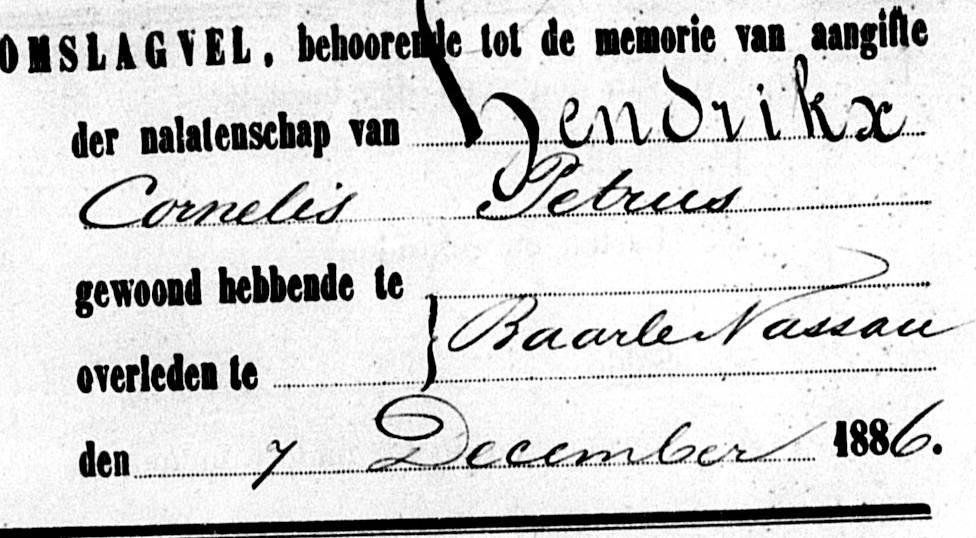 OMSLAGVEL, behoorende tot de memorie van aangifte
der nalatenschap van Hendrikx
Cornelis Petrus
gewoond hebbende te
} Baarle Nassau
overleden te
den 7 December 1886.